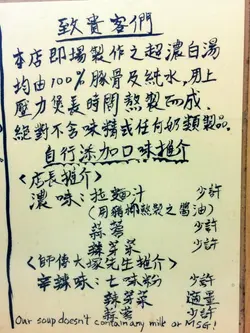 致貴客們
本店即場製作之超濃白湯
均由100%豚骨及純水,用上
壓力煲長時間熬製而成.
絕對不含味精或任何奶類製品.
自行添加口味推介
<店長推介>
濃 味:拉麵汁 少許
蒜蓉 少許
辣芽菜
<師傅大塚先生推介>
辛辣味:七味粉 少許
辣芽菜 適量
蒜蓉 少許
Our soup doesn't contain any milk or MSG!